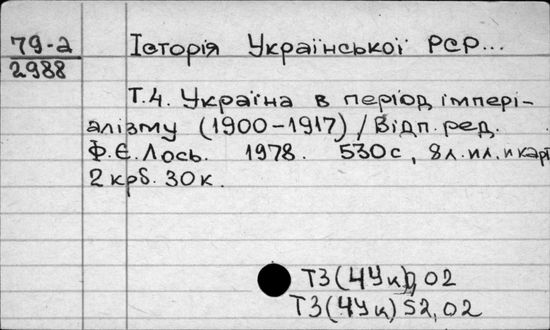 79-2
2988
Історія Української РСР...
Т.4. Україна в період імпері-
алізму (1900-1917) / Відп. ред.
Ф.Є. Лось. 1978. 530 с, 8 л. ил. и карт
2 крб. 30 к.
Т3(4Ук) 02
Т3(4Ук) 52,02